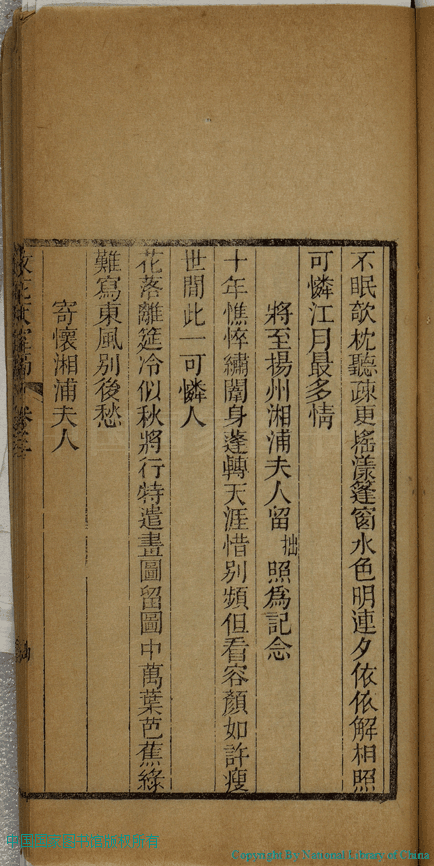 不眠欹枕聽疎更搖漾篷窗水色明連夕依依解相照
可憐江月最多情
將至揚州湘浦夫人留拙照爲記念
十年憔悴繡闈身蓬轉天涯惜別頻但看容顏如許瘦
世間此一可憐人
花落離筵冷似秋將行特遣畫圖留圖中萬葉芭蕉綠
難寫東風別後愁
寄懷湘浦夫人
卷三
Copyright By National Library of China